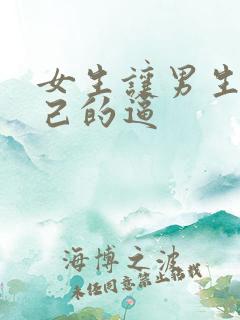 女生讓男生
己的逼
海博之波
未经同意禁止转载